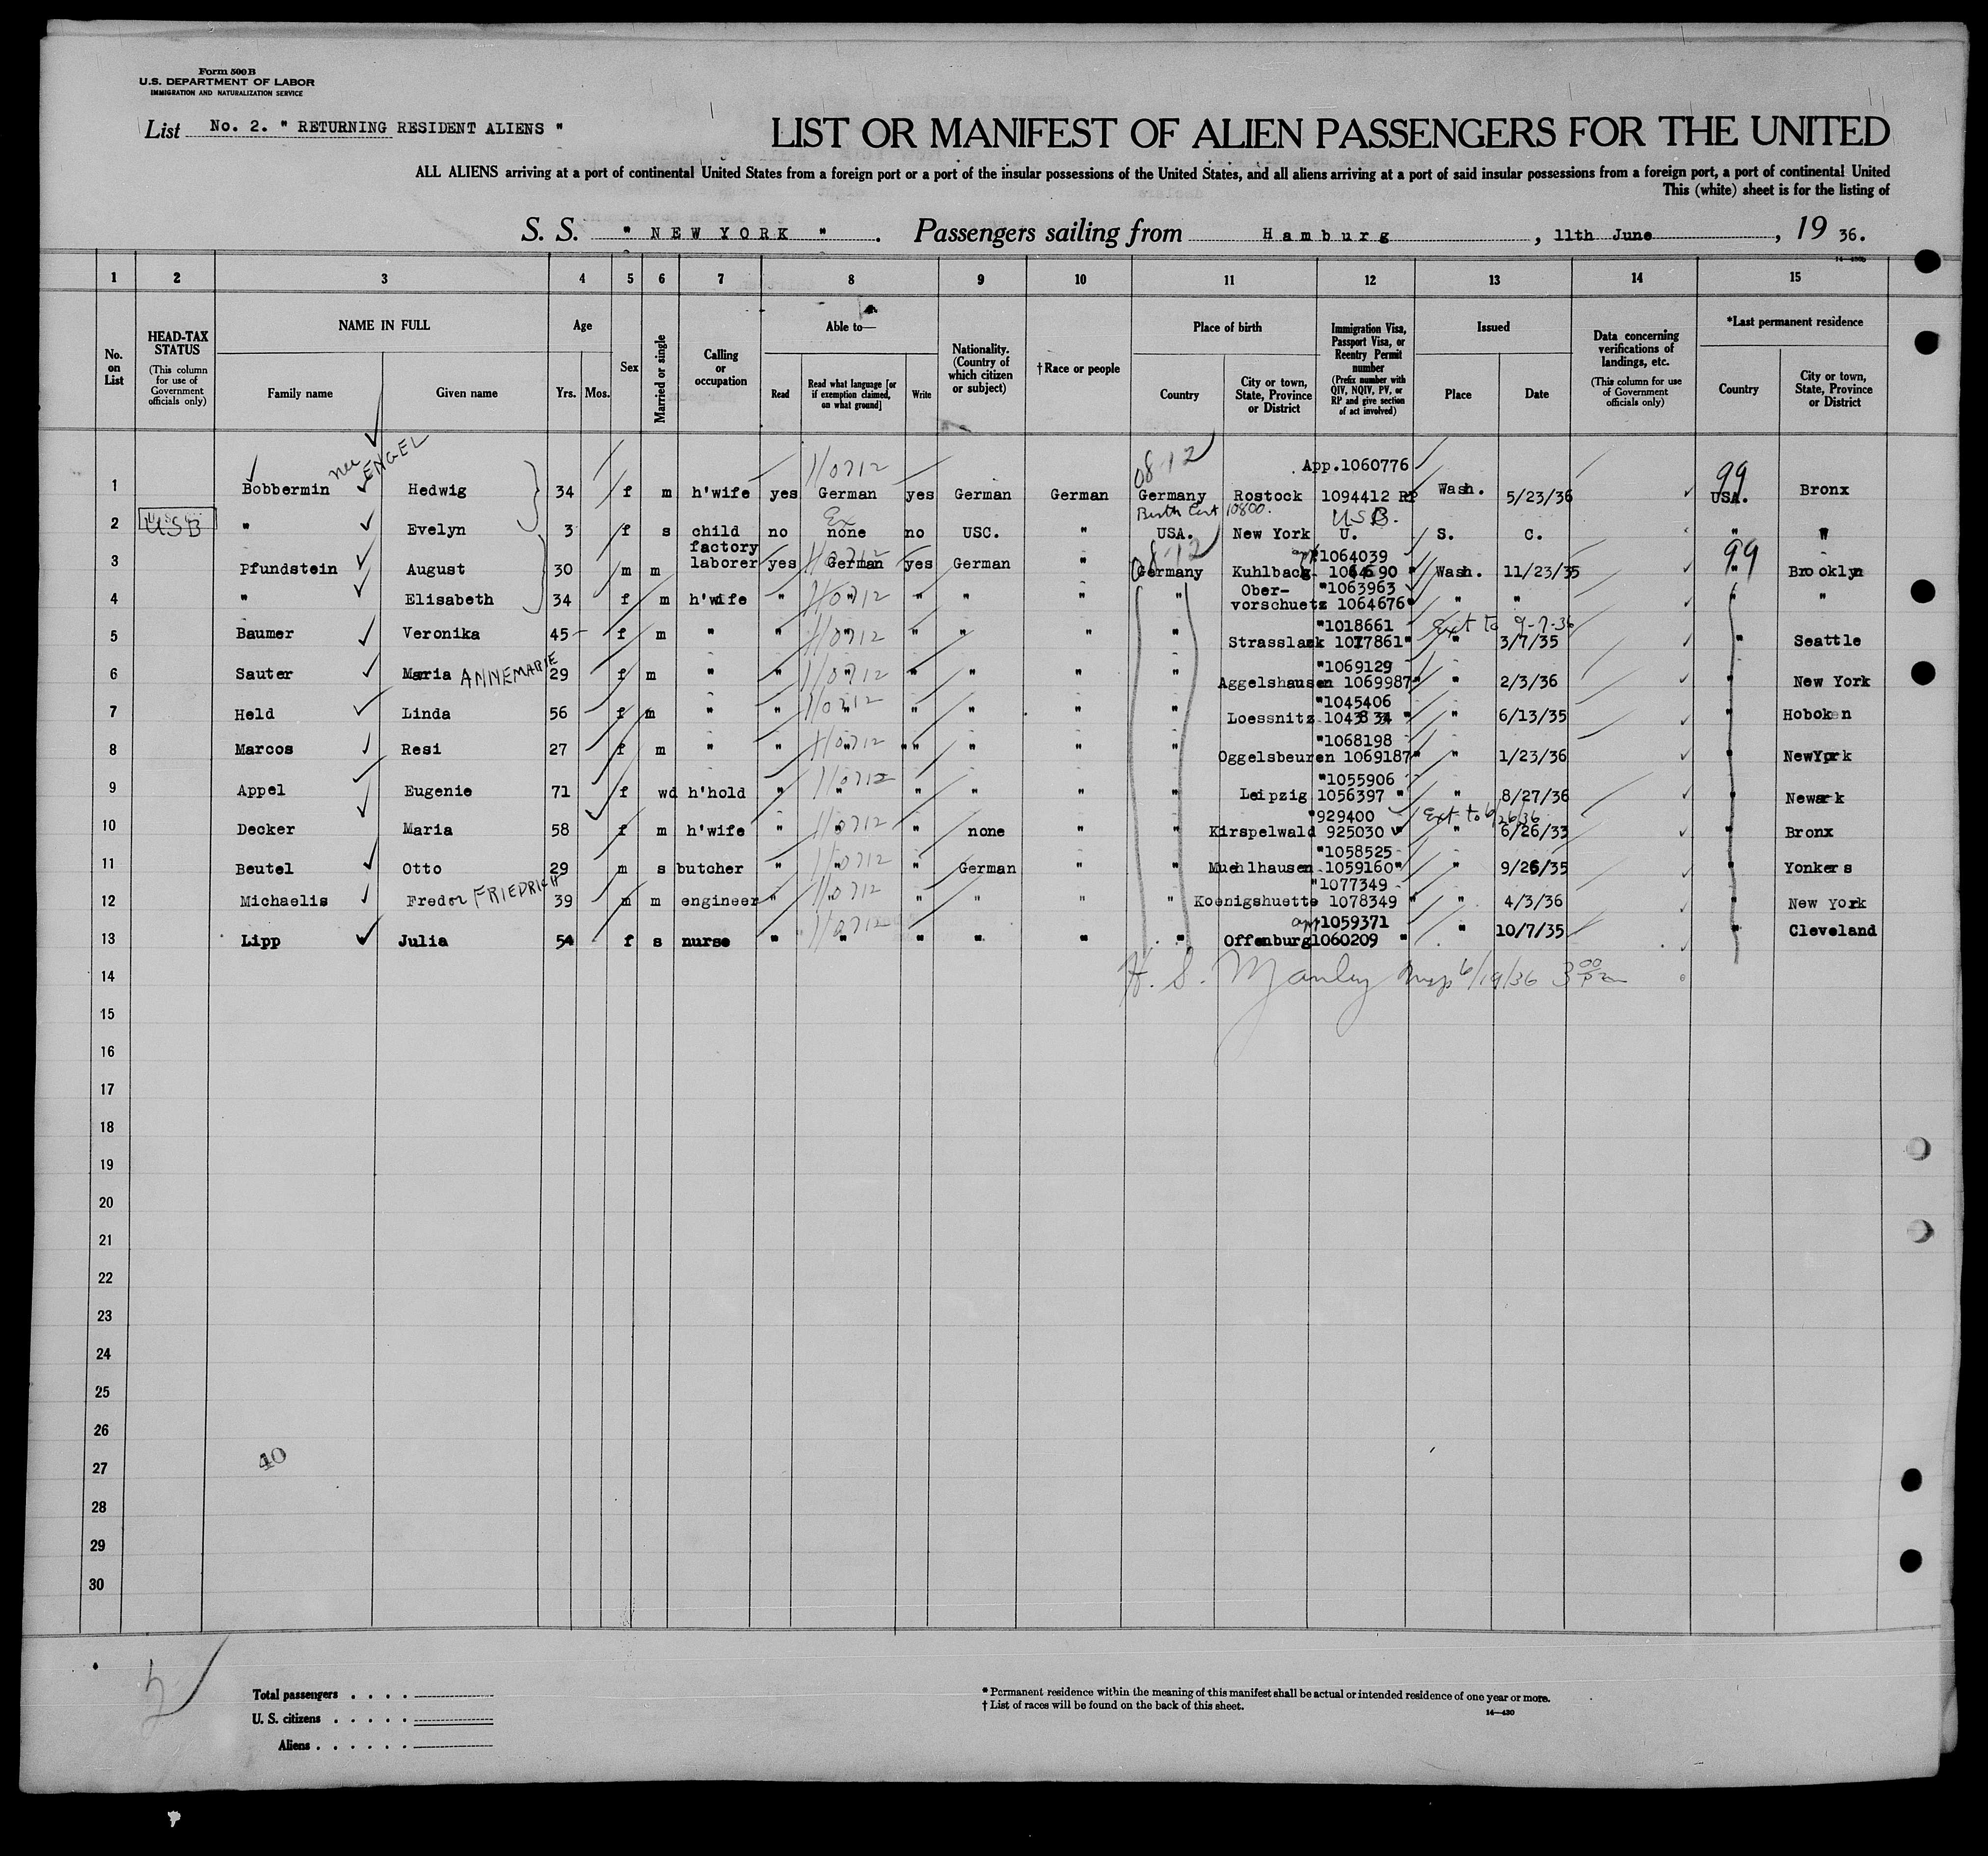 Form 500B
U.S. DEPARTMENT OF LABOR
IMMIGRATION AND NATURALIZATION SERVICE
List No. 2. " RETURNING RESIDENT ALIENS "
LIST OR MANIFEST OF ALIEN PASSENGERS FOR THE UNITED
ALL ALIENS arriving at a port of continental United States from a foreign port or a port of the insular possessions of the United States, and all aliens arriving at a port of said insular possessions from a foreign port, a port of continental United
This (white) sheet is for the listing of
S. S. " NEW YORK " . Passengers sailing from Hamburg , 11th June , 19 36.
1 2 3 4 5 6 7 8 9 10 11 12 13 14 15
No. on List
HEAD-TAX STATUS (This column for use of Government officials only)
NAME IN FULL Family name Given name
Age Yrs. Mos.
Sex
Married or single
Calling or occupation
Able to— Read Read what language [or if exemption claimed, on what ground] Write
Nationality. (Country of which citizen or subject)
†Race or people
Place of birth Country City or town, State, Province or District
Immigration Visa, Passport Visa, or Reentry Permit number (Prefix number with QIV, NQIV, PV, or RP and give section of act involved)
Issued Place Date
Data concerning verifications of landings, etc. (This column for use of Government officials only)
*Last permanent residence Country City or town, State, Province or District
nee ENGEL 0812 App.1060776 99
1 Bobbermin Hedwig 34 f m h'wife yes German yes German German Germany Rostock 1094412 RP Wash. 5/23/36 USA. Bronx
Birth Cert 10800. USB.
2 USB " Evelyn 3 f s child no Ex none no USC. " USA. New York U. S. C. " W
0812 app 1064039 99
3 Pfundstein August 30 m m factory laborer yes German yes German " Germany Kuhlbach 1064690 " Wash. 11/23/35 " Brooklyn
"1063963
4 " Elisabeth 34 f m h'wife " " " " " " Ober-vorschuetz 1064676" " " " "
"1018661 Ext to 9-7-36
5 Baumer Veronika 45 f m " " " " " " " Strasslack 1017861" " 3/7/35 " Seattle
"1069129
6 Sauter Maria ANNEMARIE 29 f m " " " " " " " Aggelshausen 1069987" " 2/3/36 " New York
"1045406
7 Held Linda 56 f m " " " " " " " Loessnitz " " 6/13/35 " Hoboken
"1068198
8 Marcos Resi 27 f m " " " " " " " Oggelsbeuren 1069187" " 1/23/36 " NewYork
"1055906
9 Appel Eugenie 71 f wd h'hold " " " " " " Leipzig 1056397 " " 8/27/36 " Newark
"929400 Ext to 6/26/36
10 Decker Maria 58 f m h'wife " " " none " " Kirspelwald 925030 " " 6/26/33 " Bronx
"1058525
11 Beutel Otto 29 m s butcher " " " German " " Muehlhausen 1059160" " 9/26/35 " Yonkers
"1077349
12 Michaelis Fredor FRIEDRICH 39 m m engineer " " " " " " Koenigshuette 1078349 " " 4/3/36 " New York
app 1059371
13 Lipp Julia 54 f s nurse " " " " " " Offenburg 1060209 " " 10/7/35 " Cleveland
14 H. S. Manley Insp 6/19/36 3 00 pm
15
16
17
18
19
20
21
22
23
24
25
26
27
28
29
30
40
Total passengers . . . .
U. S. citizens . . . . .
Aliens . . . . . .
* Permanent residence within the meaning of this manifest shall be actual or intended residence of one year or more.
† List of races will be found on the back of this sheet.
14—430